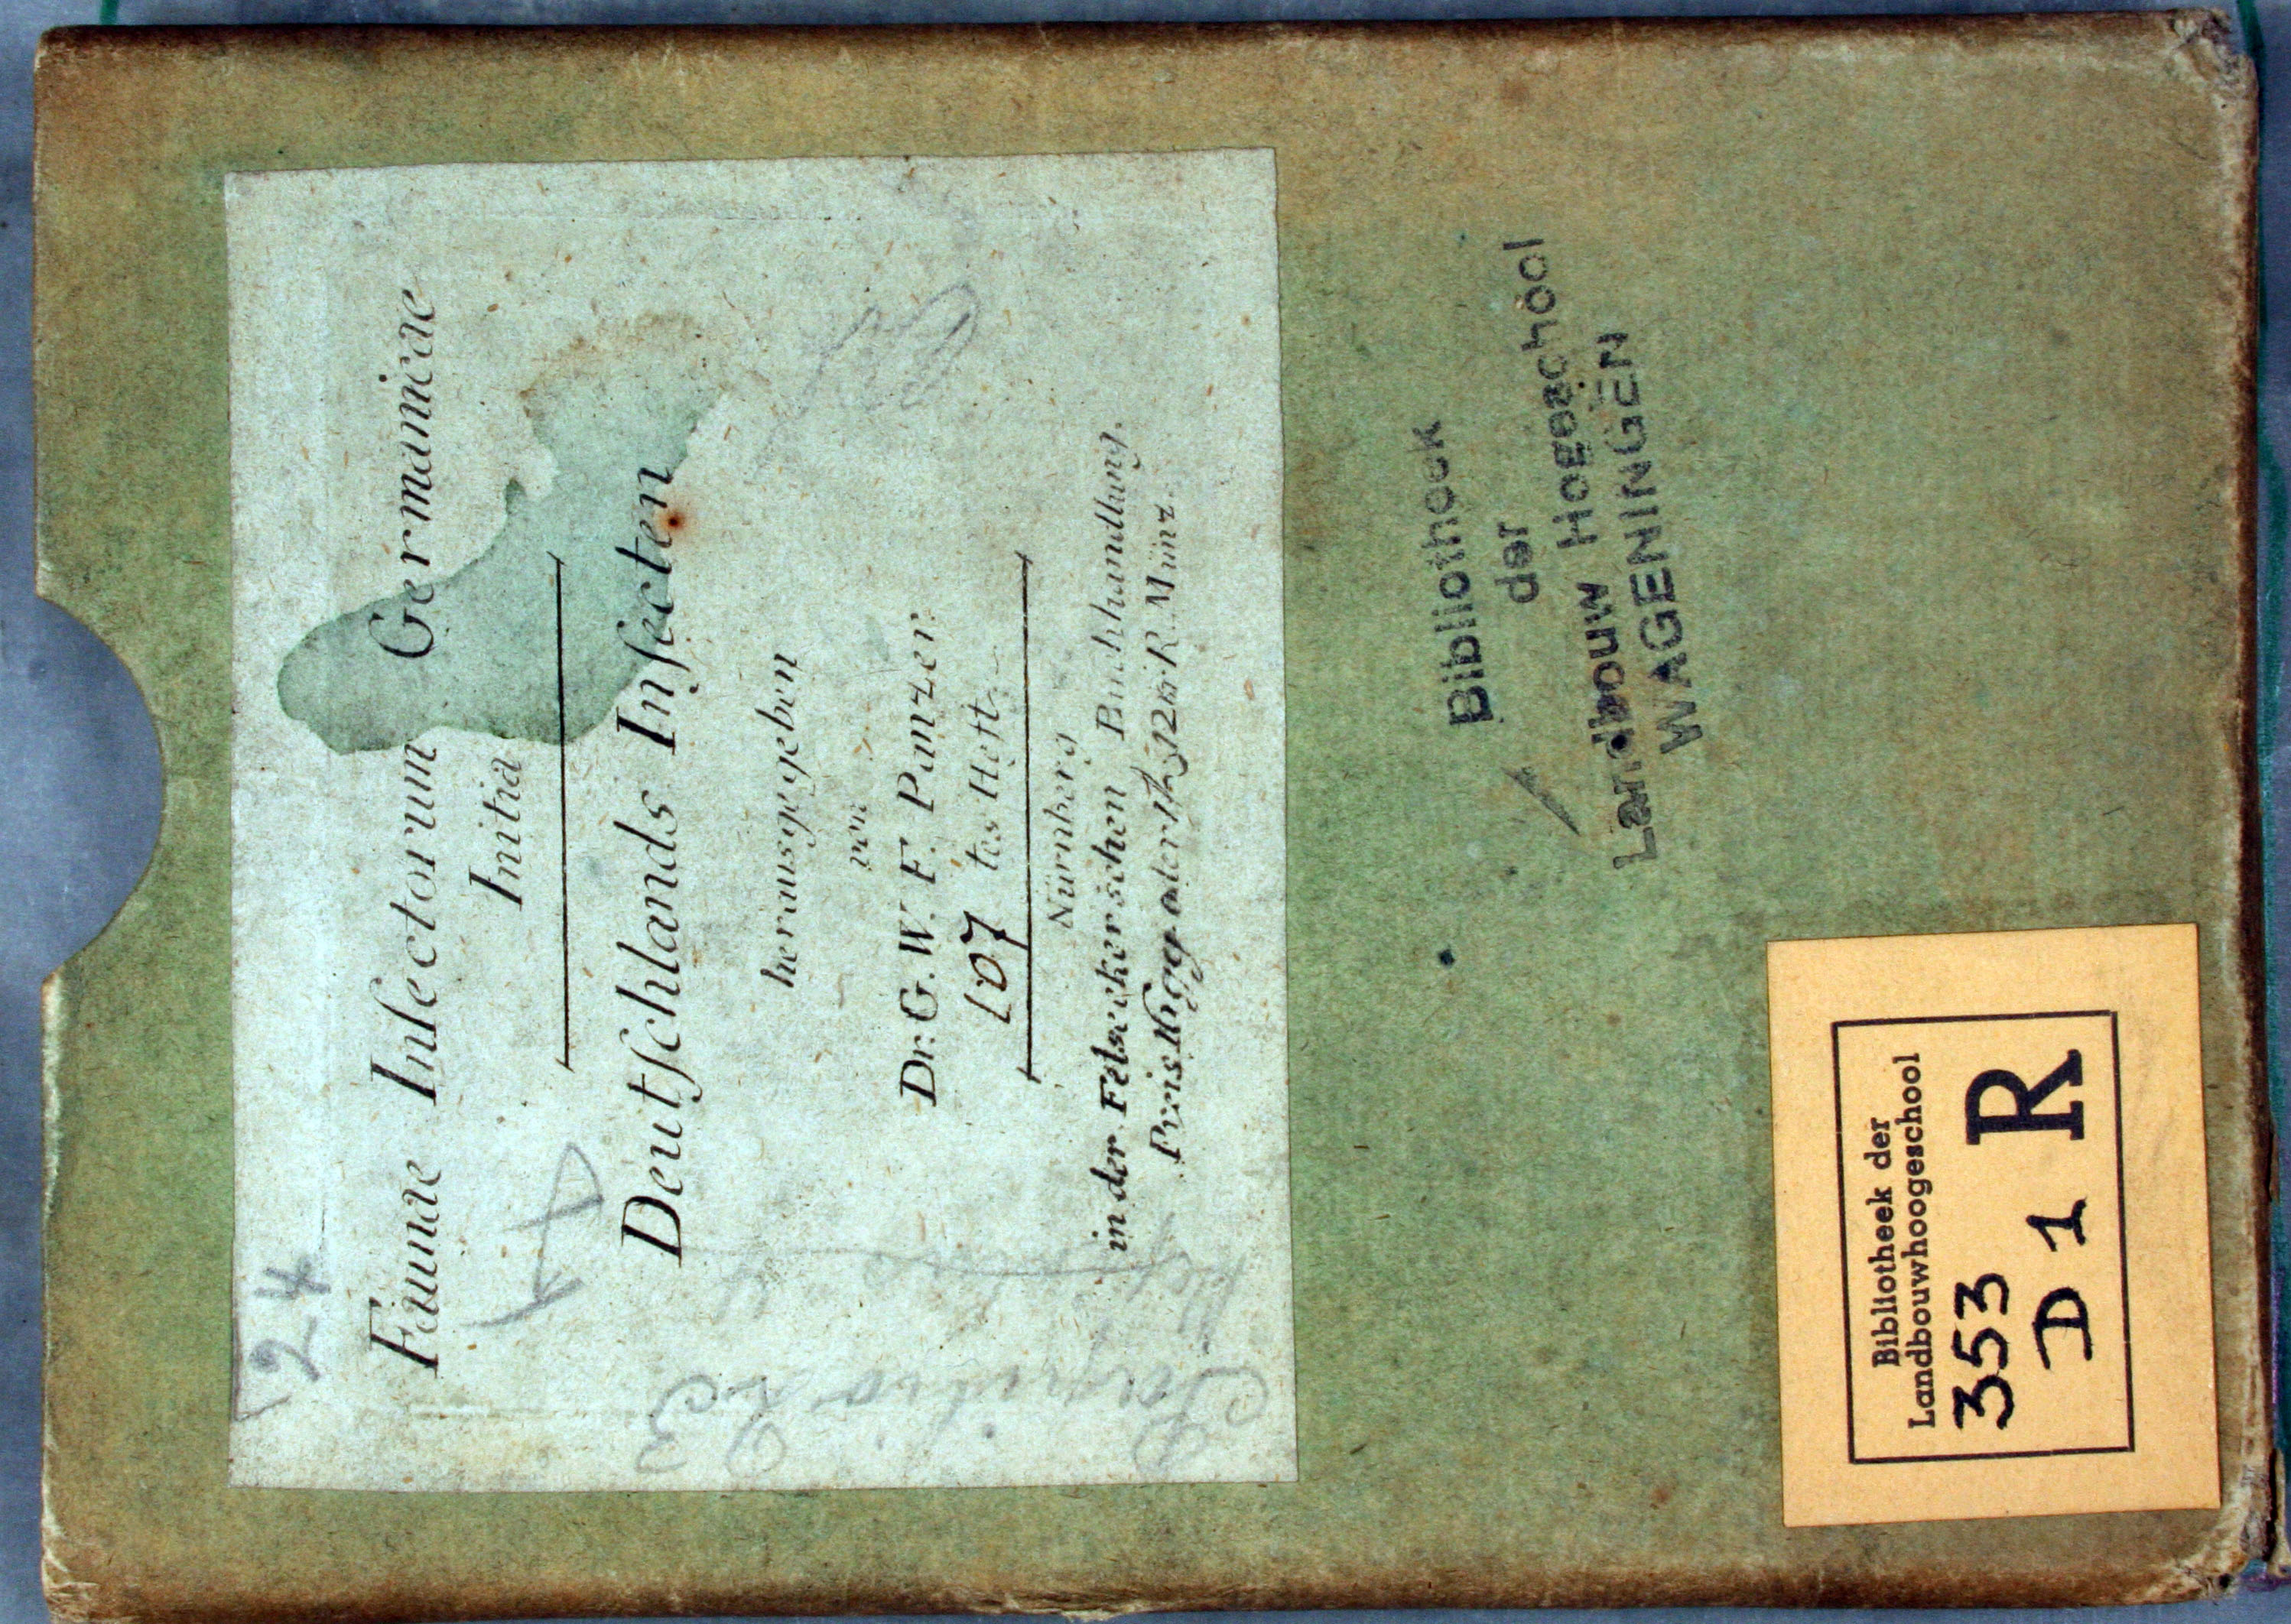 24
Faunae Insectorum Germanicae
Initia
Deutſchlands Inſecten
herausgegeben
von
Dr. G. W. F. Panzer.
107 tes Heft.
Nürnberg
in der Felseckerschen Buchhandlung.
Preis 16 ggr oder 1 12 Münz.
Bibliotheek
der
Landbouw Hogeschool
WAGENINGEN
Bibliotheek der
Landbouwhoogeschool
353
D 1 R